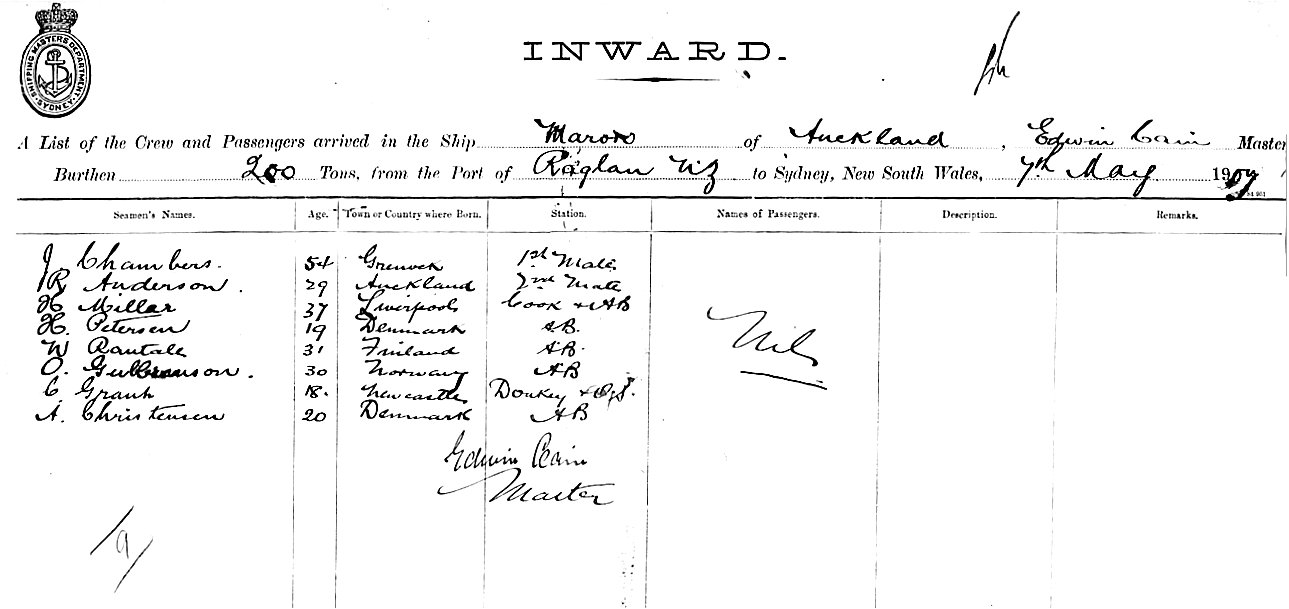 SHIPPING MASTERS DEPARTMENT
SYDNEY
INWARD.
A List of the Crew and Passengers arrived in the Ship of Auckland, Edwin Cain Master
Burthen 200 Tons, from the Port of Raglan NZ to Sydney, New South Wales, 7th May 1907
Seamen's Names. Age. Town or Country where Born. Station. Names of Passengers. Description. Remarks.
J Chambers. 54 1st Mate
R Anderson. 29 Auckland 2nd Mate
H Millar 37 Liverpool Cook & AB
H. Petersen 19 Denmark A.B.
W 31 Finland A.B.
O. 30 Norway AB
C Grant 18. Newcastle Donkey & O.S.
A. Christensen 20 Denmark AB
Nil
Edwin Cain
Master